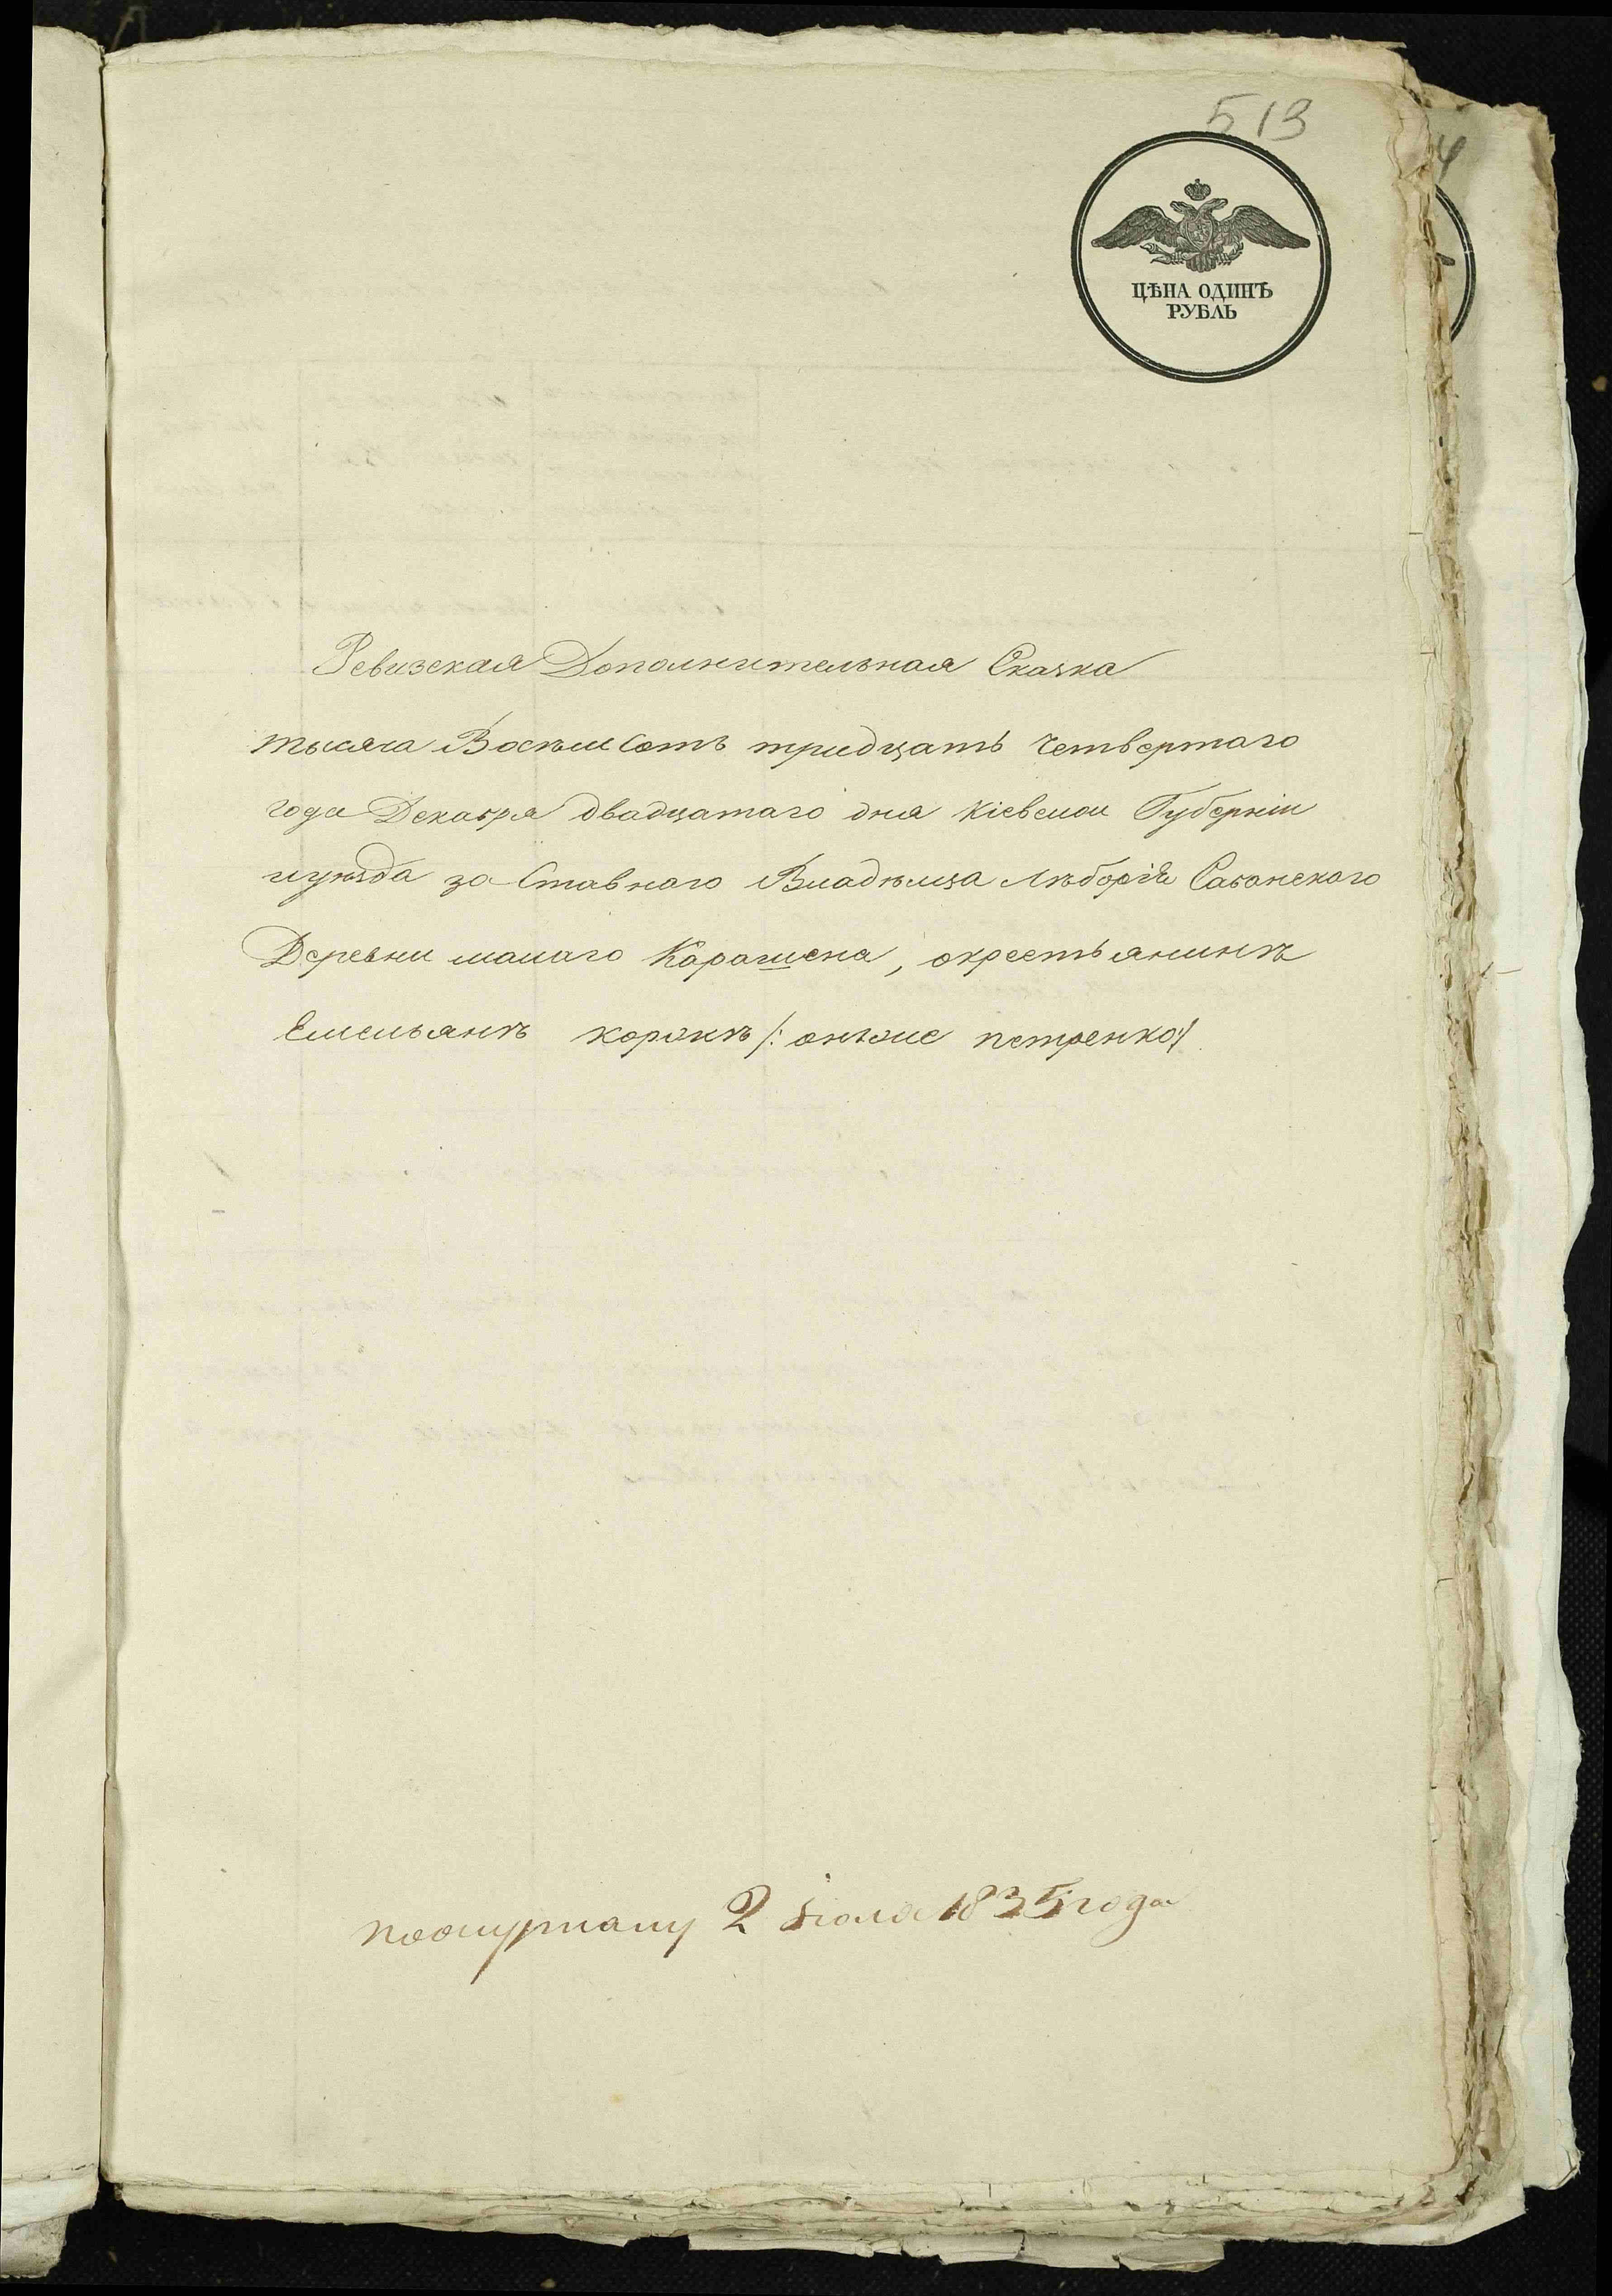 513
4
ЦѢНА ОДИНЪ
РУБЛЬ
Ревизская Дополнительная Сказка
тысяча Восѣмсотъ тридцать четвертаго
года Декабря двадцатаго дня Кіевской Губерніи
и уѣзда заставнаго Владѣльца Сабанскаго
Деревни малаго Карашена, окрестьянинѣ
Емельянѣ /: онъже петренко :/
2 Іюля 1835 года